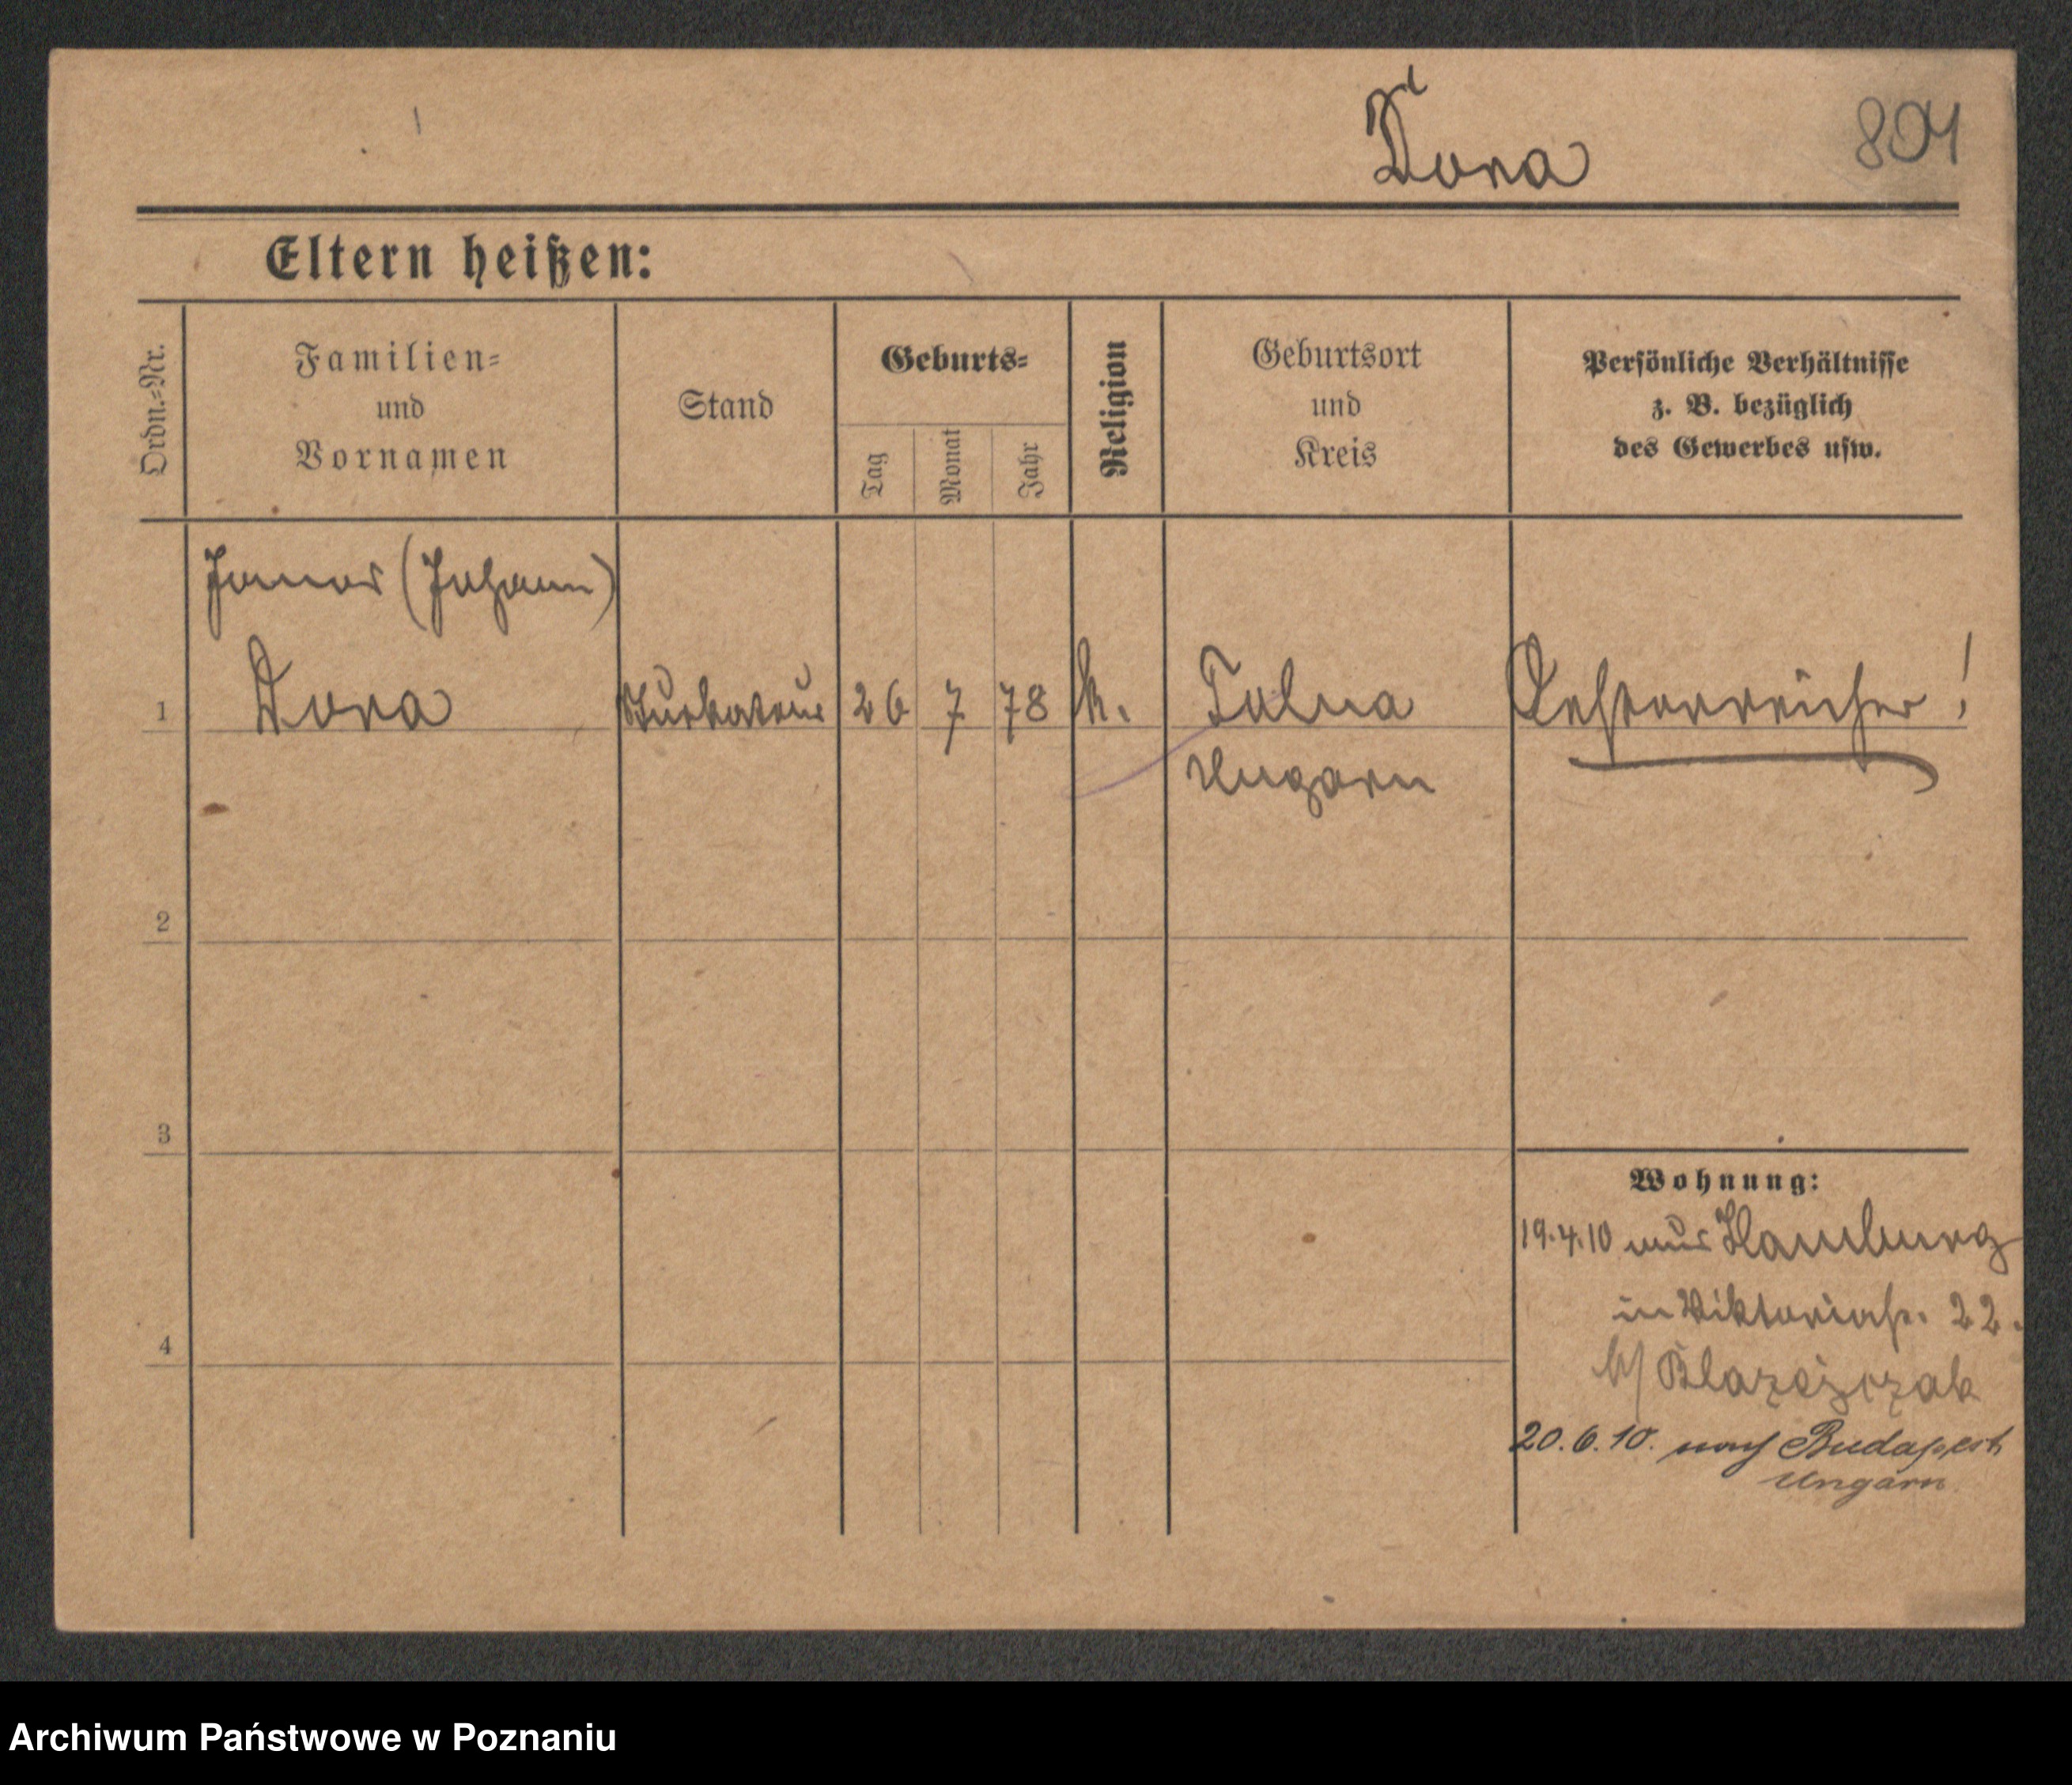 Dora
804
Eltern heißen:
Ordn.=Nr.
Familien=
und
Vornamen
Stand
Geburts=
Tag
Monat
Jahr
Religion
Geburtsort
und
Kreis
Persönliche Verhältnisse
z. B. bezüglich
des Gewerbes usw.
Janos (Johann)
1 Dora Stukateur 26 7 78 k. Tolna Oesterreicher!
Ungarn
2
3
Wohnung:
19.4.10 aus Hamburg
in Viktoriastr. 22.
4
b/ Blazejczak
20.6.10. nach Budapest
Ungarn
Archiwum Państwowe w Poznaniu